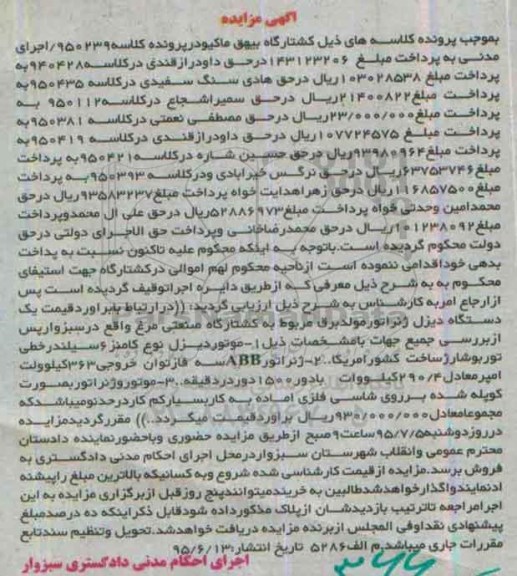 آگهی مزایده
بموجب پرونده کلاسه های ذیل کشتارگاه بیهق ماکیان درپرونده کلاسه۹۵۰۲۳۹/اجرای
مدنی به پرداخت مبلغ ۱۴۳۱۲۳۲۰۶ درحق داودرازقندی درکلاسه۹۴۰۴۲۸به
پرداخت مبلغ ۱۰۳۰۲۸۵۳۸ریال درحق هادی سنگ سفیدی درکلاسه ۹۵۰۴۳۵به
پرداخت مبلغ۲۱۴۰۰۸۲۲ریال درحق سمیراشجاع درکلاسه۹۵۰۱۱۲ به
پرداخت مبلغ۲۳/۰۰۰/۰۰۰ریال درحق مصطفی نعمتی درکلاسه ۹۵۰۳۸۱به
پرداخت مبلغ ۱۰۷۷۲۴۵۷۵ریال درحق داودرازقندی درکلاسه ۹۵۰۴۱۹به
پرداخت مبلغ۹۳۹۸۰۹۶۴ریال درحق حسین شاره درکلاسه۹۵۰۴۲۱به پرداخت
مبلغ۶۳۷۵۳۷۴۶ریال درحق نرگس خیرابادی ودرکلاسه ۹۵۰۳۹۳به پرداخت
مبلغ۱۱۶۸۵۷۵۰۰ریال درحق زهراهدایت خواه پرداخت مبلغ۹۳۵۸۳۲۳۷ریال درحق
محمدامین وحدتی فواه پرداخت مبلغ۵۲۸۸۶۹۷۳ریال درحق علی ال محمدوپرداخت
مبلغ۴۰۱۲۳۸۰۹۲ریال درحق محمدرضاخانی وپرداخت حق الاجرای دولتی درحق
دولت محکوم گردیده است.باتوجه به اینکه محکوم علیه تاکنون نسبت به پرداخت
بدهی خوداقدامی ننموده است ازناحیه محکوم لهم اموالی درکشتارگاه جهت استیفای
محکوم به به شرح ذیل معرفی که ازطریق دایره اجراتوقیف گردیده است پس
ازارجاع امربه کارشناس به شرح ذیل ارزیابی گردید: ((درارتباط بابراوردقیمت یک
دستگاه دیزل ژنراتورمولدبرق مربوط به کشتارگاه صنعتی مرغ واقع درسبزوارپس
ازبررسی جمیع جهات بامشخصات ذیل۱-موتوردیزل نوع کامنز۶سیلندرخطی
توربوشارژساخت کشورآمریکا.۲-ژنراتورABBسه فازتوان خروجی۳۶۳کیلوولت
امپرمعادل۲۹۰/۴کیلووات بادور۱۵۰۰دوردردقیقه..۳-موتوروژنراتوربصورت
کوپله شده برروی شاسی فلزی اماده به کاربسیارکم کاردرحدنومیباشدکه
مجموعامعادل۹۳۰/۰۰۰/۰۰۰ریال براوردقیمت میگردد..)) مقررگردیدمزایده
درروزدوشنبه۹۵/۷/۵ساعت۹صبح ازطریق مزایده حضوری وباحضورنماینده دادستان
محترم عمومی وانقلاب شهرستان سبزواردرمحل اجرای احکام مدنی دادگستری به
فروش برسد.مزایده ازقیمت کارشناسی شده شروع وبه کسانیکه بالاترین مبلغ راپیشنه
ادنمایندواگذارخواهدشدطالبین به خریدمیتوانندپنج روزقبل ازبرگزاری مزایده به این
اجرامراجعه تاترتیب بازدیدشان ازپلاک مذکورداده شودقابل ذکراینکه ده درصدمبلغ
پیشنهادی نقداوفی المجلس ازبرنده مزایده دریافت خواهدشد.تحویل وتنظیم سندتابع
مقررات جاری میباشد.م الف۵۲۸۶ تاریخ انتشار:۹۵/۶/۱۳
اجرای احکام مدنی دادگستری سبزوار